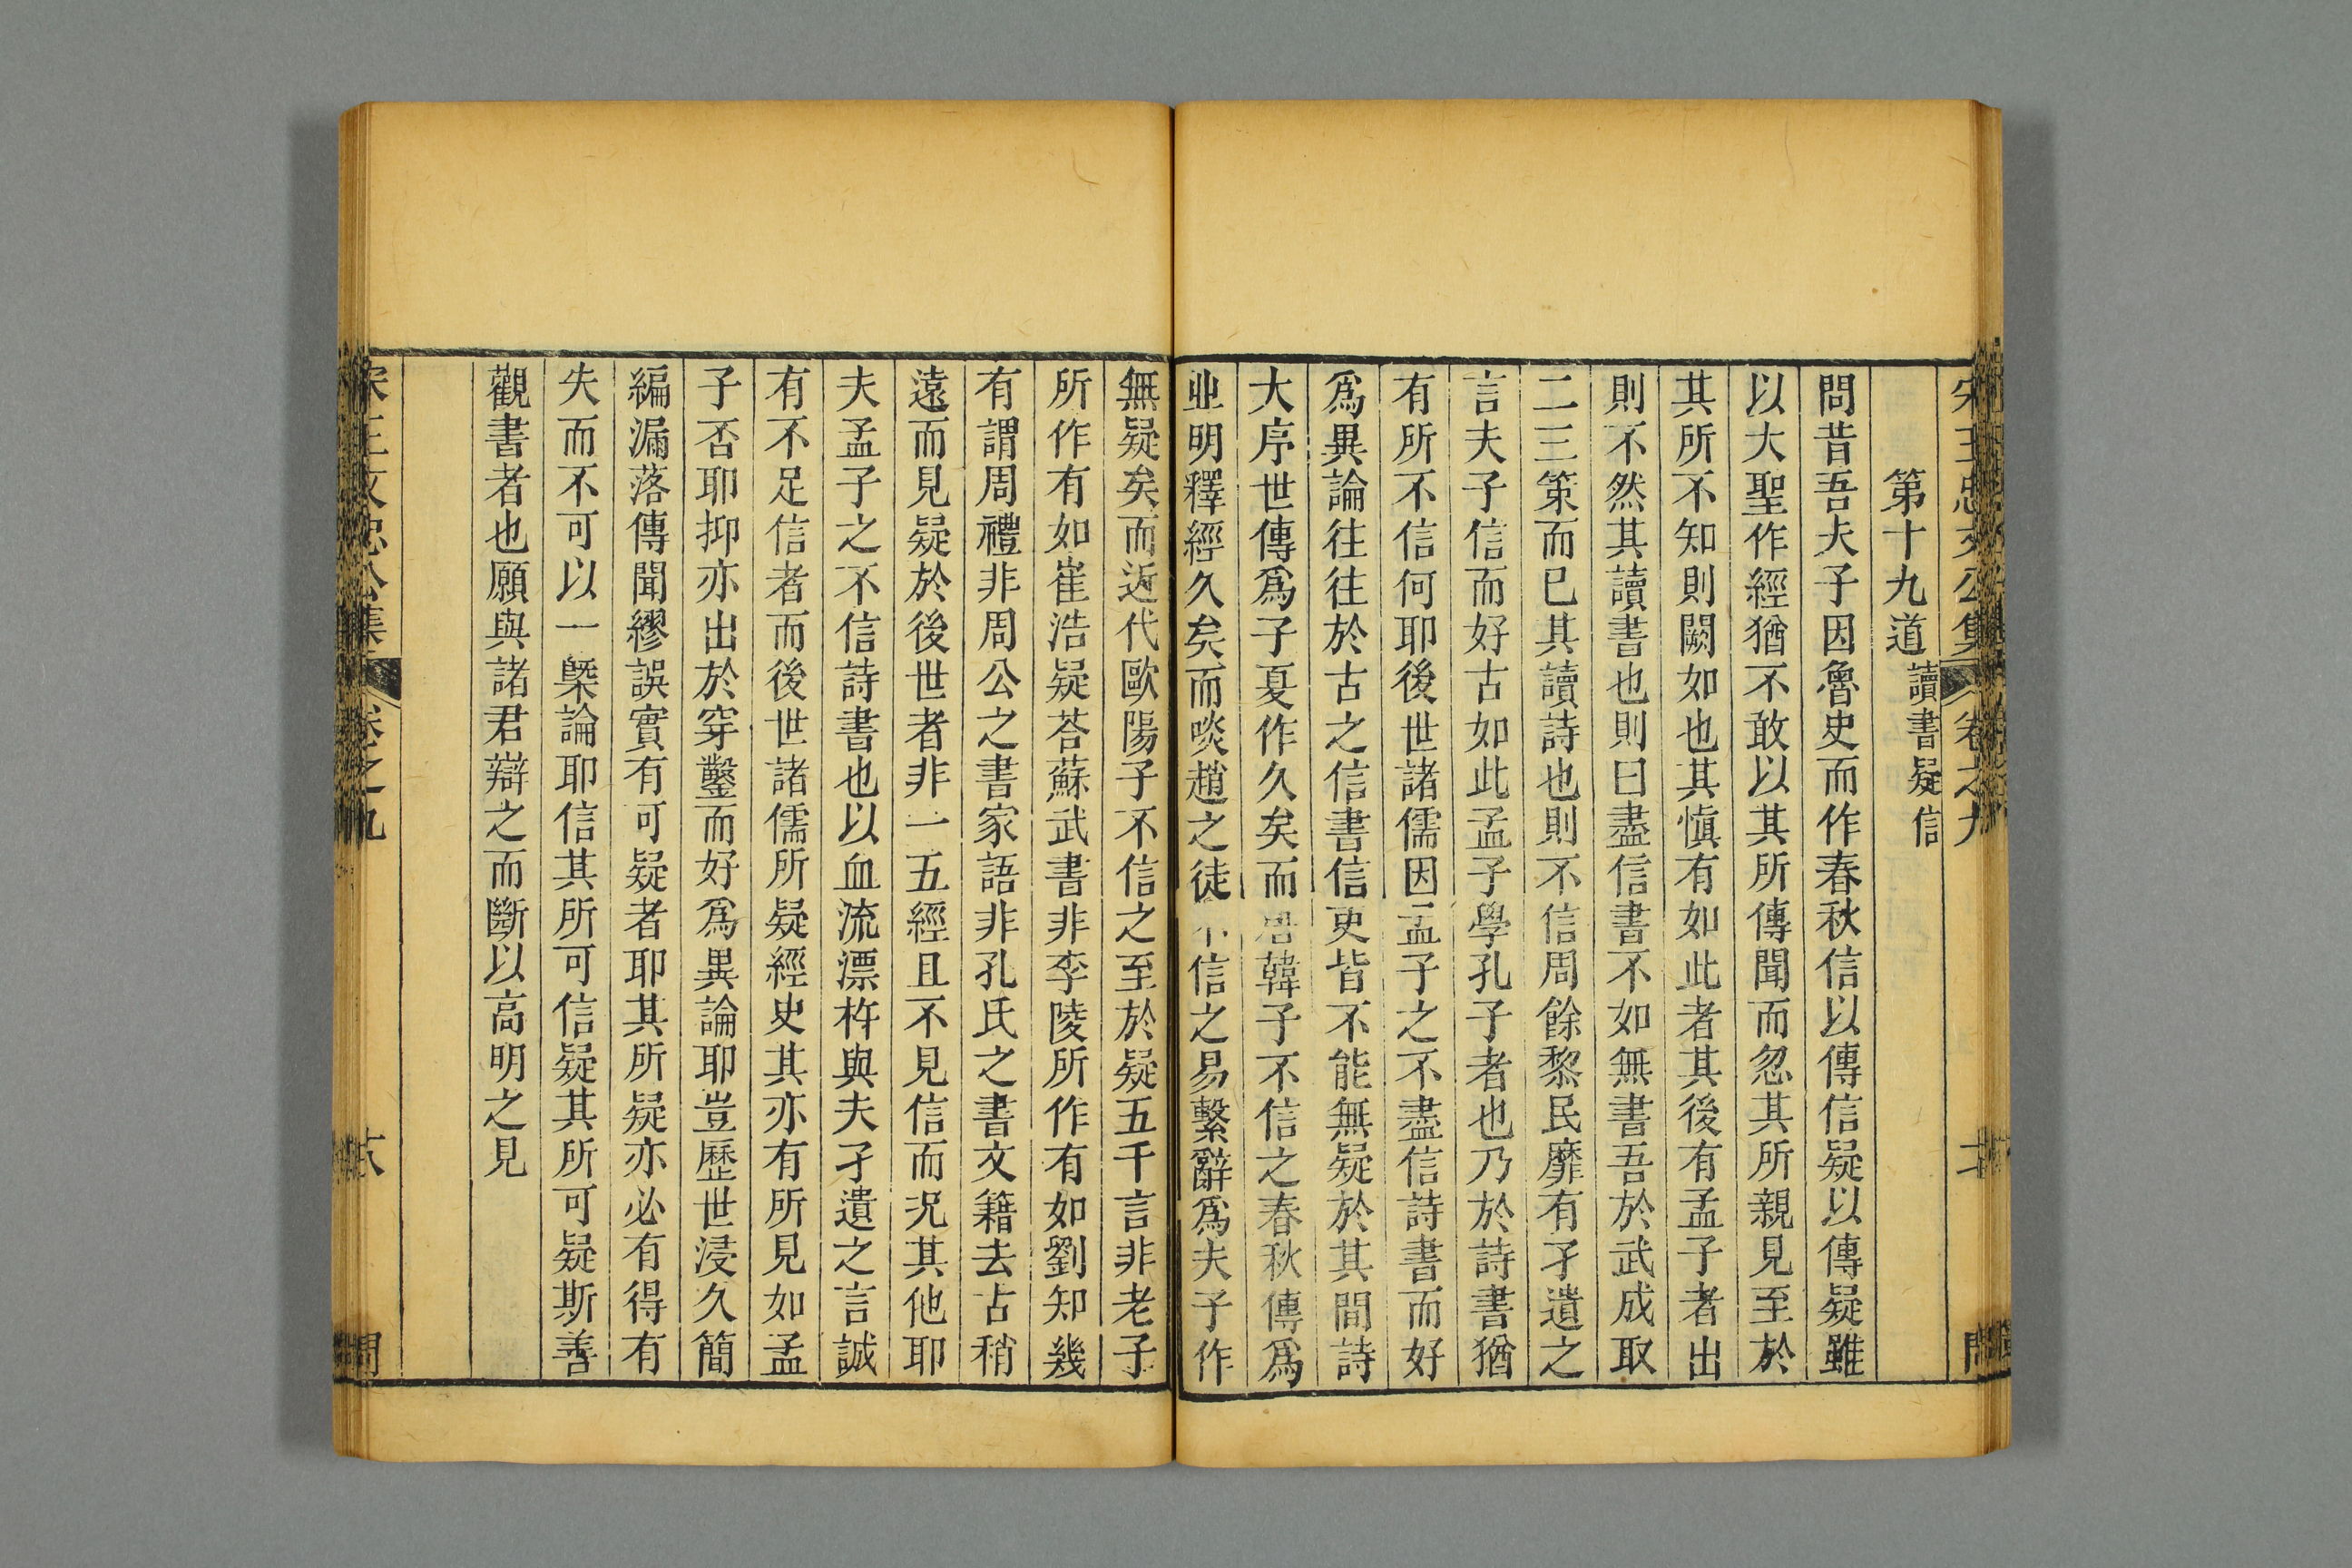 宋王忠文公集 卷之九
第十九道讀書疑信
問昔吾夫子因魯史而作春秋信以傳信疑以傳疑雖
以大聖作經猶不敢以其所傳聞而忽其所親見至於
其所不知則闕如也其慎有如此者其後有孟子者出
則不然其讀書也則曰盡信書不如無書吾於武成取
二三策而已其讀詩也則不信周餘黎民靡有孑遺之
言夫子信而好古如此孟子學孔子者也乃於詩書猶
有所不信何耶後世諸儒因孟子之不盡信詩書而好
爲異論往往於古之信書信史皆不能無疑於其間詩
大序世傳爲子夏作久矣而韓子不信之春秋傳爲
丘明釋經久矣而啖趙之徒不信之易繫辭爲夫子作
無疑矣而近代歐陽子不信之至於疑五千言非老子
所作有如崔浩疑荅蘇武書非李陵所作有如劉知幾
有謂周禮非周公之書家語非孔氏之書文籍去古稍
遠而見疑於後世者非一五經且不見信而況其他耶
夫孟子之不信詩書也以血流漂杵與夫孑遺之言誠
有不足信者而後世諸儒所疑經史其亦有所見如孟
子否耶抑亦出於穿鑿而好爲異論耶豈歷世浸久簡
編漏落傳聞繆誤實有可疑者耶其所疑亦必有得有
失而不可以一槩論耶信其所可信疑其所可疑斯善
觀書者也願與諸君辯之而斷以高明之見
宋王文忠公集 卷之九